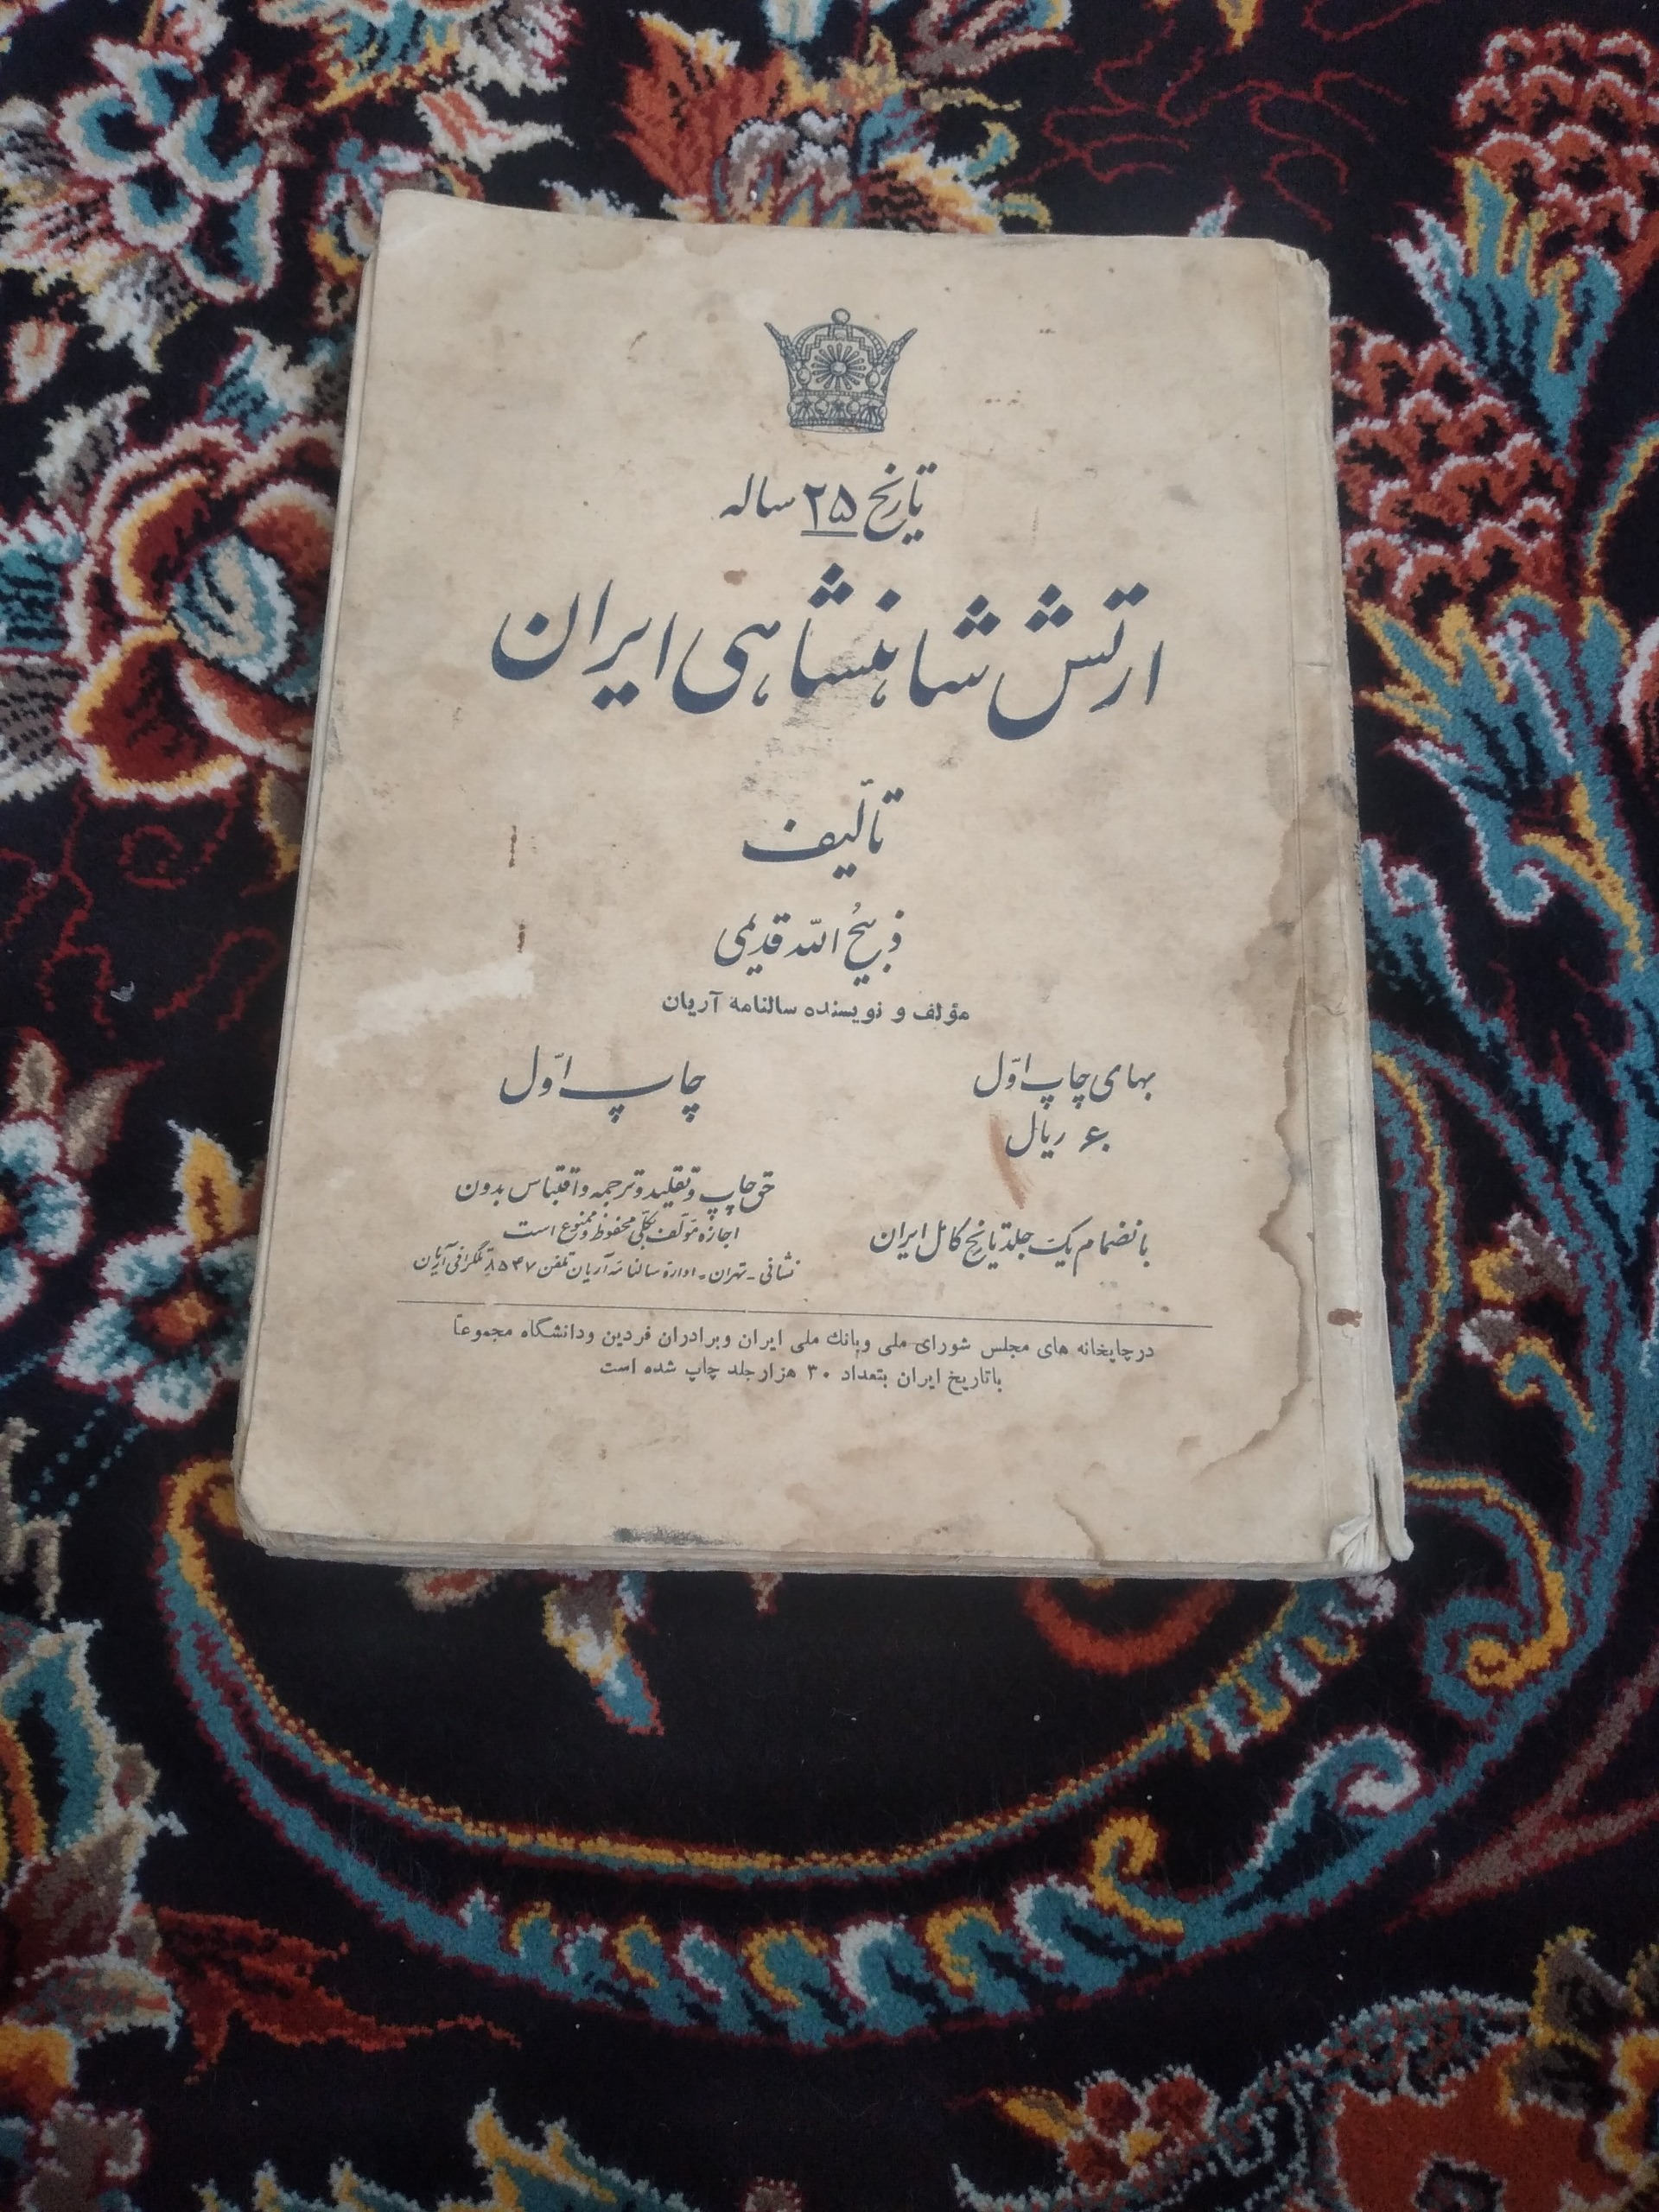 تاریخ ۲۵ ساله
ارتش شاهنشاهی ایران
تألیف
ذبیح اللّه قدیمی
مؤلف و نویسنده سالنامه آریان
بهای چاپ اوّل
۶۰ ریال
بانضمام یک جلد تاریخ کامل ایران
چاپ اوّل
حق چاپ و تقلید و ترجمه و اقتباس بدون
اجازه مؤلف بکلی محفوظ و ممنوع است
نشانی - تهران - اداره سالنامه آریان تلفن ۸۵۴۷ تلگرافی آریان
در چاپخانه های مجلس شورای ملی وبانك ملی ایران وبرادران فردین ودانشگاه مجموعاً
باتاریخ ایران بتعداد ۳۰ هزار جلد چاپ شده است